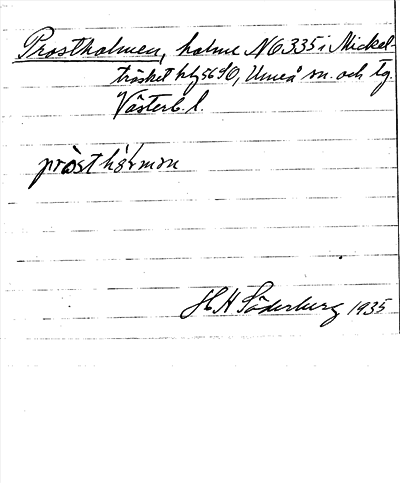 Prostholmen, holme NO335 i Mickel-
träsket hfg5690, Umeå sn. och tg.
Västerb. l.
pròsthól`mɘn
H H Söderburg 1935